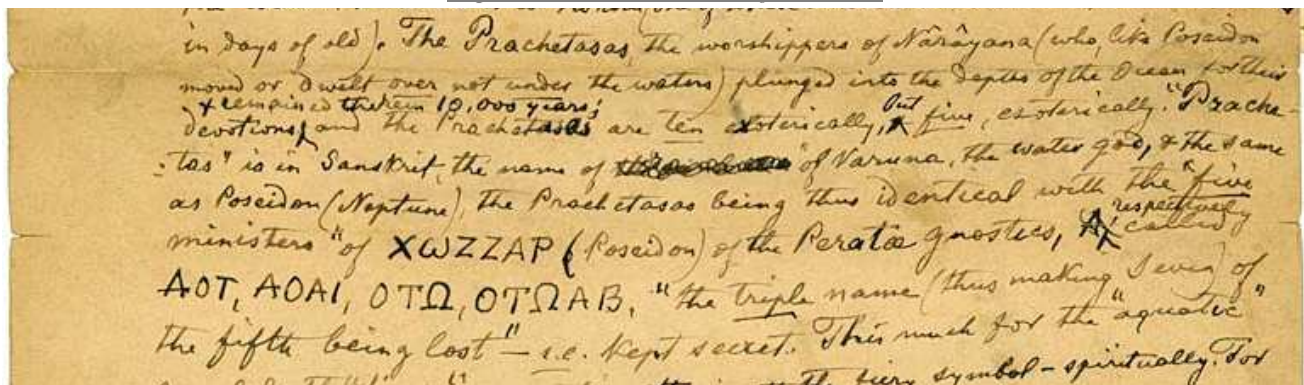 in days of old). The Prachetasas, the worshippers of Nârâyana (who, like Poseidon
moved or dwelt over not under the waters) plunged into the depths of the Ocean for their
& remained therein 10,000 years;
devotions, and the Prachetasas are ten exoterically, but five, esoterically. "Prache-
tas" is in Sanskrit, the name of of Varuna, the water god, & the same
as Poseidon (Neptune), the Prachetasas being thus identical with the "five
ministers" of ΧωΖΖΑΡ (Poseidon) of the Peratæ gnostics, respectively called
ΑΟΤ, ΑΟΑΙ, ΟΤΩ, ΟΤΩΑΒ, "the triple name (thus making seven) of
the fifth being lost" – i.e. kept secret. This much for the "aquatic"
the fiery symbol – spiritually. For